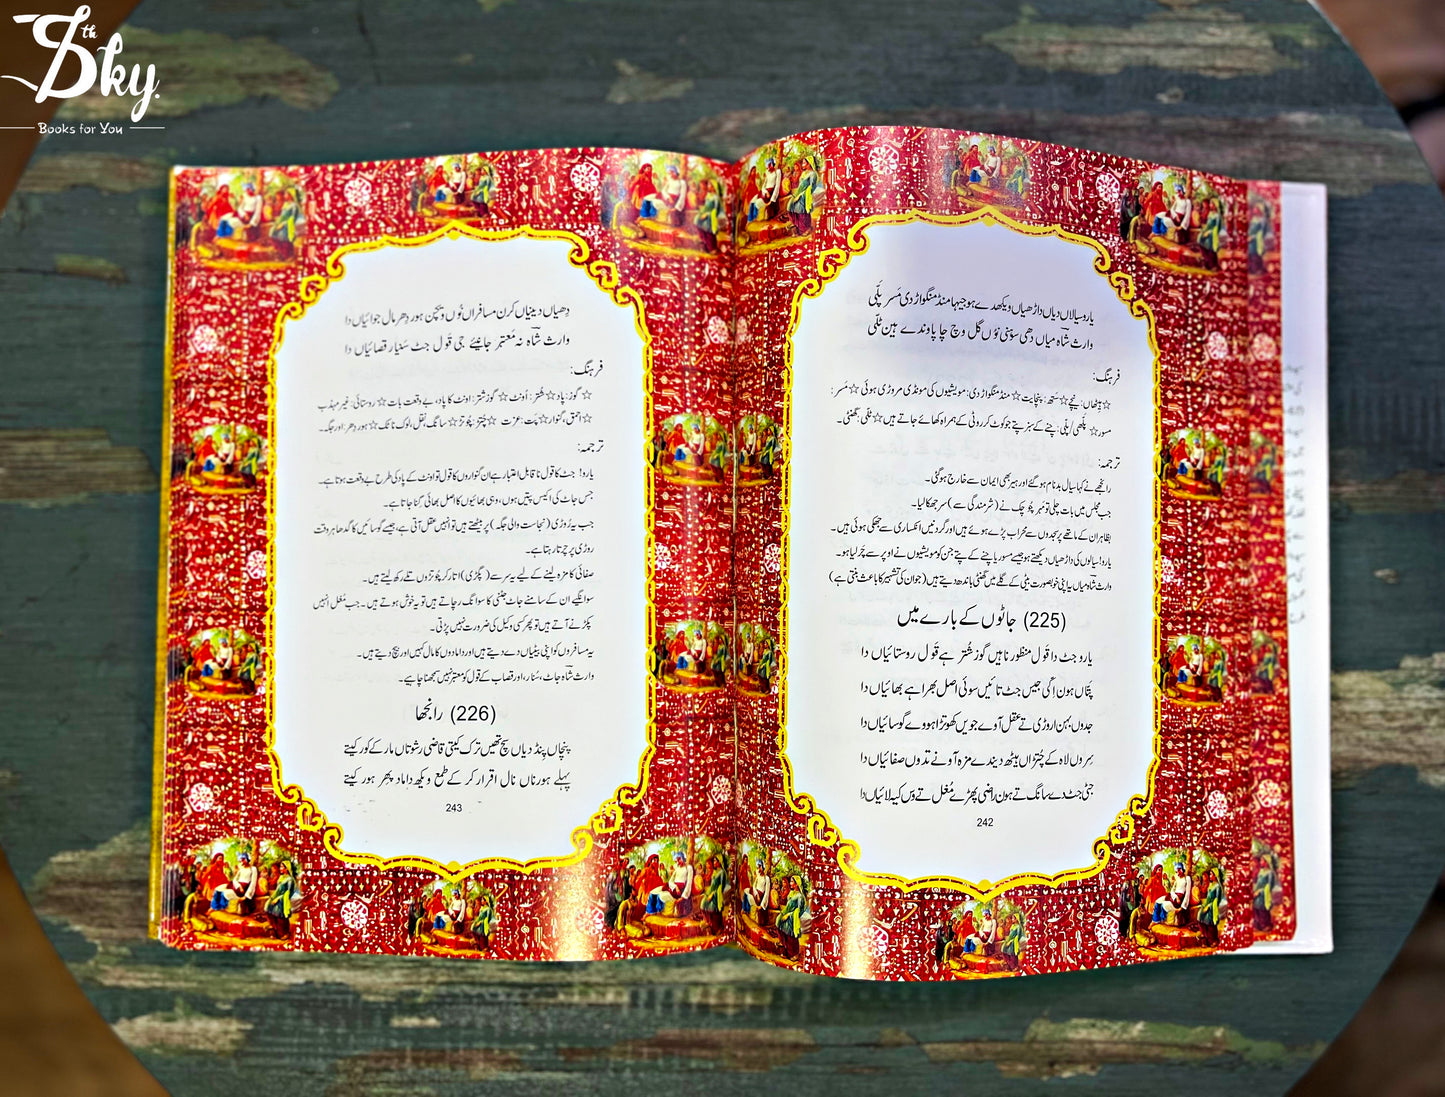 8th Sky.
Books for You
یارو سیالاں دیاں داڑھیاں ویکھدے ہو جیہا منڈ منگواڑ دی مَسر پَلّی
وارث شاہ میاں دھی سوہنی نوں گل وچ چا پاوندے ہین ٹلّی
فرہنگ:
☆ ہیٹھاں: نیچے ☆ سَتھ: پنچایت ☆ منڈ منگواڑ دی: مویشیوں کی مونڈی مروڑی ہوئی ☆ مَسر:
مسور ☆ پَلّھی/ پلّی: چنے کے سبز پتے جو کوٹ کر روٹی کے ہمراہ کھائے جاتے ہیں ☆ ٹلّی: گھنٹی۔
ترجمہ:
رانجھے نے کہا سیال بدنام ہو گئے اور ہیر بھی ایمان سے خارج ہو گئی۔
جب مجلس میں بات چلی تو مہر چوچک نے (شرمندگی سے) سر جھکا لیا۔
بظاہر ان کے ماتھے پر سجدوں سے محراب پڑے ہوئے ہیں اور گردنیں انکساری سے جھکی ہوئی ہیں۔
یارو! سیالوں کی داڑھیاں دیکھتے ہو جیسے مسور یا چنے کے پتے جن کو مویشیوں نے اوپر سے چَر لیا ہو۔
وارث شاہ میاں یہ اپنی خوبصورت بیٹی کے گلے میں گھنٹی باندھ دیتے ہیں (جو ان کی تشہیر کا باعث بنتی ہے)
(225) جاٹوں کے بارے میں
یارو جٹ دا قول منظور ناہیں گوز شُتر ہے قول روستائیاں دا
پتّاں ہون اِکّی جیس جٹ تائیں سوئی اصل بھرا ہے بھائیاں دا
جدوں بہن اروڑی تے عقل آوے جویں کھوتڑا ہووے گوسائیاں دا
سِروں لاہ کے چُتڑاں ہیٹھ دیندے مزہ آونے تدوں صفائیاں دا
جٹی جٹ دے سانگ تے ہون راضی پھڑے مُغل تے وَس کیہ لائیاں دا
242
دِھیاں دینیاں کرن مسافراں نُوں ویچن ہور دِھر مال جوائیاں دا
وارث شاہ نہ مُعتبر جانیئے جی قَول جٹ سُنیار قصائیاں دا
فرہنگ:
☆ گوز: پاد ☆ شُتر: اُونٹ ☆ گوزشتر: اونٹ کا پاد، بے وقعت بات ☆ روستائی: غیر مہذب
☆ احمق، گنوار ☆ پَت: عزت ☆ چُتڑ: چوتڑ ☆ سانگ: نقل، لوک ناٹک ☆ ہور دِھر: اور جگہ۔
ترجمہ:
یارو! جٹ کا قول ناقابلِ اعتبار ہے ان گنواروں کا قول تو اونٹ کے پاد کی طرح بے وقعت ہوتا ہے۔
جس جاٹ کی اکیس پتیں ہوں، وہی بھائیوں کا اصل بھائی گِنا جاتا ہے۔
جب یہ رُوڑی (نجاست والی جگہ) پر بیٹھتے ہیں تو انہیں عقل آتی ہے، جیسے گوسائیں کا گدھا ہر وقت
روڑی پر چرتا رہتا ہے۔
صفائی کا مزہ لینے کے لیے یہ سر سے (پگڑی) اتار کر چوتڑوں تلے رکھ لیتے ہیں۔
سوانگیے ان کے سامنے جاٹ جٹنی کا سوانگ رچاتے ہیں تو یہ خوش ہوتے ہیں۔ جب مُغل انہیں
پکڑنے آتے ہیں تو پھر کسی وکیل کی ضرورت نہیں پڑتی۔
یہ مسافروں کو اپنی بیٹیاں دے دیتے ہیں اور دامادوں کا مال کہیں اور بیچ دیتے ہیں۔
وارث شاہ جاٹ، سُنار، اور قصاب کے قول کو معتبر نہیں سمجھنا چاہیے۔
(226) رانجھا
پنچاں پِنڈ دیاں سچ تھیں ترک کیتی قاضی رشوتاں مار کے کور کیتے
پہلے ہورناں نال اقرار کر کے طمع ویکھ داماد پھر ہور کیتے
243